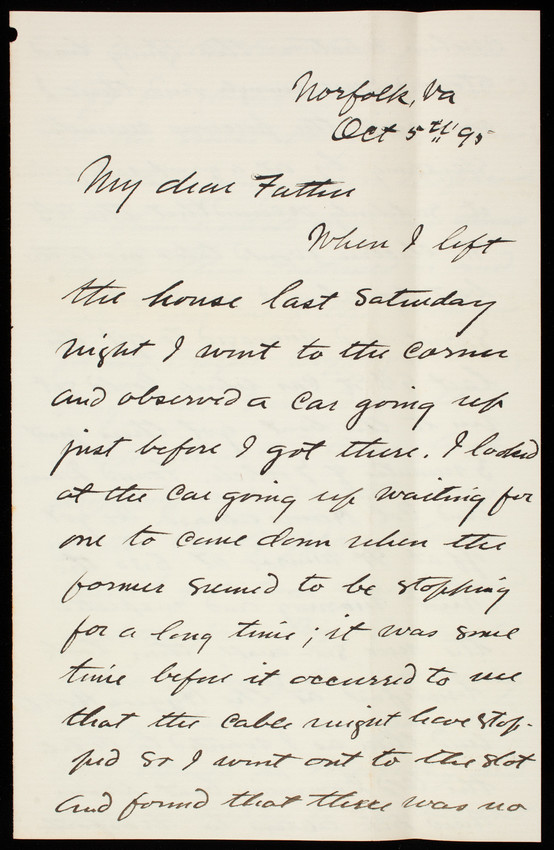 Norfolk, Va
Oct 5th 95
My dear Father
When I left
the house last Saturday
night I went to the corner
and observed a car going up
just before I got there. I looked
at the car going up waiting for
one to come down when the
former seemed to be stopping
for a long time; it was some
time before it occurred to me
that the cable might have stop-
ped so I went out to the slot
and found that there was no